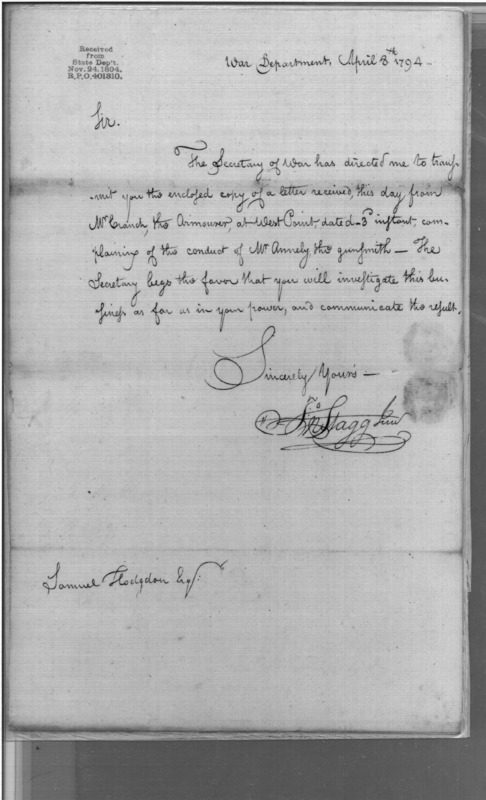 Received
from
State Dep't.
Nov. 24, 1894.
R.P.O. 401310.
War Department, April 8th 1794.
Sir.
The Secretary of War has directed me to trans-
mit you the enclosed copy of a letter received, this day from
Mr Cranch, the Armourer, at West Point, dated 3d instant, com-
plaining of the conduct of Mr Annely, the gunsmith — The
Secretary begs the favor that you will investigate this bu-
siness as far as in your power, and communicate the result.
Sincerely Yours —
Jno Stagg Junr
Samuel Hodgdon Esqr.